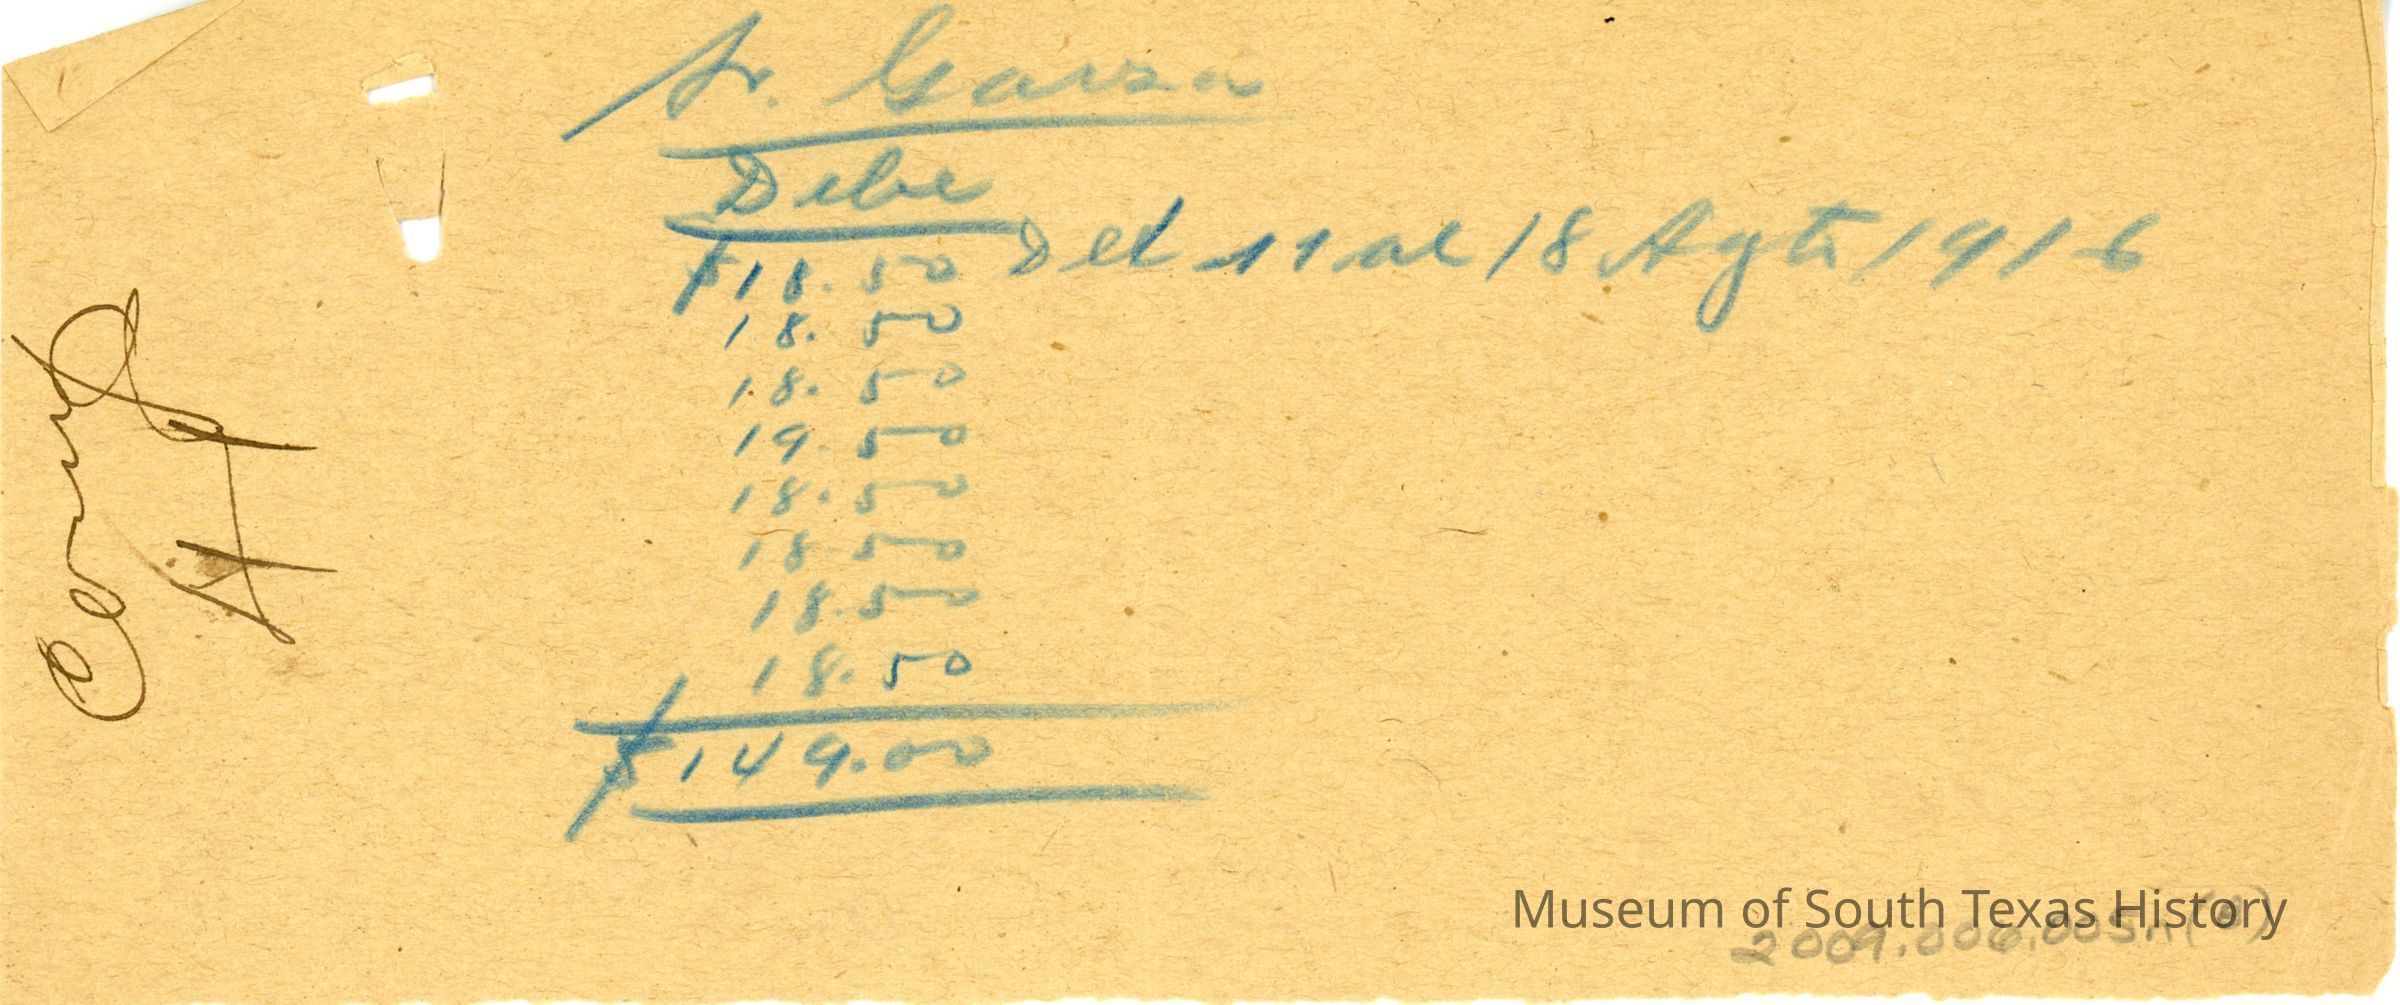 Sr. Garza
Debe
$18.50 Del 11 al 18 Agto 1916
18.50
18.50
19.50
18.50
18.50
18.50
18.50
$149.00
Museum of South Texas History